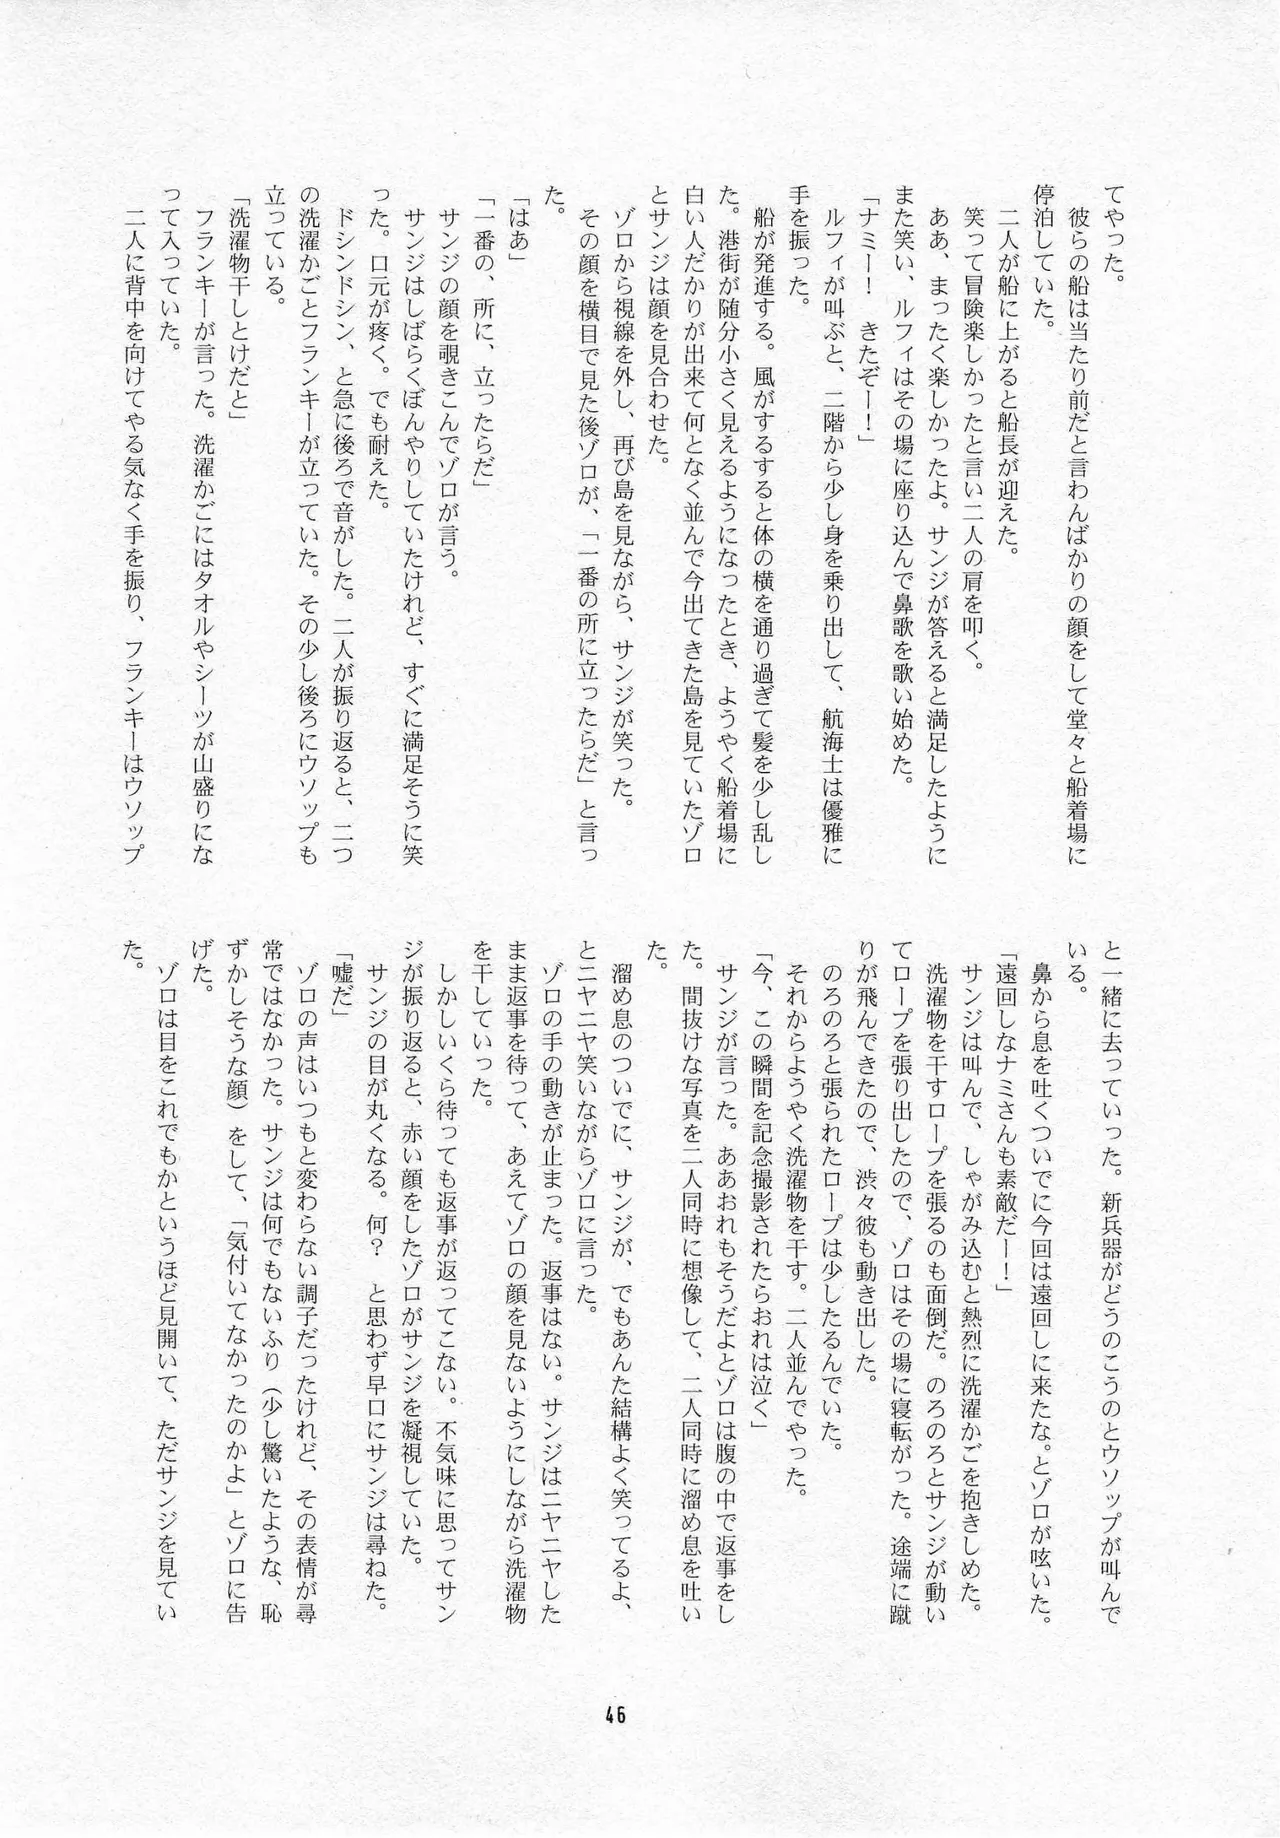 てやった。
　彼らの船は当たり前だと言わんばかりの顔をして堂々と船着場に
停泊していた。
　二人が船に上がると船長が迎えた。
　笑って冒険楽しかったと言い二人の肩を叩く。
　ああ、まったく楽しかったよ。サンジが答えると満足したように
また笑い、ルフィはその場に座り込んで鼻歌を歌い始めた。
「ナミー！　きたぞー！」
　ルフィが叫ぶと、二階から少し身を乗り出して、航海士は優雅に
手を振った。
　船が発進する。風がするすると体の横を通り過ぎて髪を少し乱し
た。港街が随分小さく見えるようになったとき、ようやく船着場に
白い人だかりが出来て何となく並んで今出てきた島を見ていたゾロ
とサンジは顔を見合わせた。
　ゾロから視線を外し、再び島を見ながら、サンジが笑った。
　その顔を横目で見た後ゾロが、「一番の所に立ったらだ」と言っ
た。
「はあ」
「一番の、所に、立ったらだ」
　サンジの顔を覗きこんでゾロが言う。
　サンジはしばらくぼんやりしていたけれど、すぐに満足そうに笑
った。口元が疼く。でも耐えた。
　ドシンドシン、と急に後ろで音がした。二人が振り返ると、二つ
の洗濯かごとフランキーが立っていた。その少し後ろにウソップも
立っている。
「洗濯物干しとけだと」
　フランキーが言った。洗濯かごにはタオルやシーツが山盛りにな
って入っていた。
　二人に背中を向けてやる気なく手を振り、フランキーはウソップ
と一緒に去っていった。新兵器がどうのこうのとウソップが叫んで
いる。
　鼻から息を吐くついでに今回は遠回しに来たな。とゾロが呟いた。
「遠回しなナミさんも素敵だー！」
　サンジは叫んで、しゃがみ込むと熱烈に洗濯かごを抱きしめた。
　洗濯物を干すロープを張るのも面倒だ。のろのろとサンジが動い
てロープを張り出したので、ゾロはその場に寝転がった。途端に蹴
りが飛んできたので、渋々彼も動き出した。
　のろのろと張られたロープは少したるんでいた。
　それからようやく洗濯物を干す。二人並んでやった。
「今、この瞬間を記念撮影されたらおれは泣く」
　サンジが言った。ああおれもそうだよとゾロは腹の中で返事をし
た。間抜けな写真を二人同時に想像して、二人同時に溜め息を吐い
た。
　溜め息のついでに、サンジが、でもあんた結構よく笑ってるよ、
とニヤニヤ笑いながらゾロに言った。
　ゾロの手の動きが止まった。返事はない。サンジはニヤニヤした
まま返事を待って、あえてゾロの顔を見ないようにしながら洗濯物
を干していった。
　しかしいくら待っても返事が返ってこない。不気味に思ってサン
ジが振り返ると、赤い顔をしたゾロがサンジを凝視していた。
　サンジの目が丸くなる。何？　と思わず早口にサンジは尋ねた。
「嘘だ」
　ゾロの声はいつもと変わらない調子だったけれど、その表情が尋
常ではなかった。サンジは何でもないふり（少し驚いたような、恥
ずかしそうな顔）をして、「気付いてなかったのかよ」とゾロに告
げた。
　ゾロは目をこれでもかというほど見開いて、ただサンジを見てい
た。
46